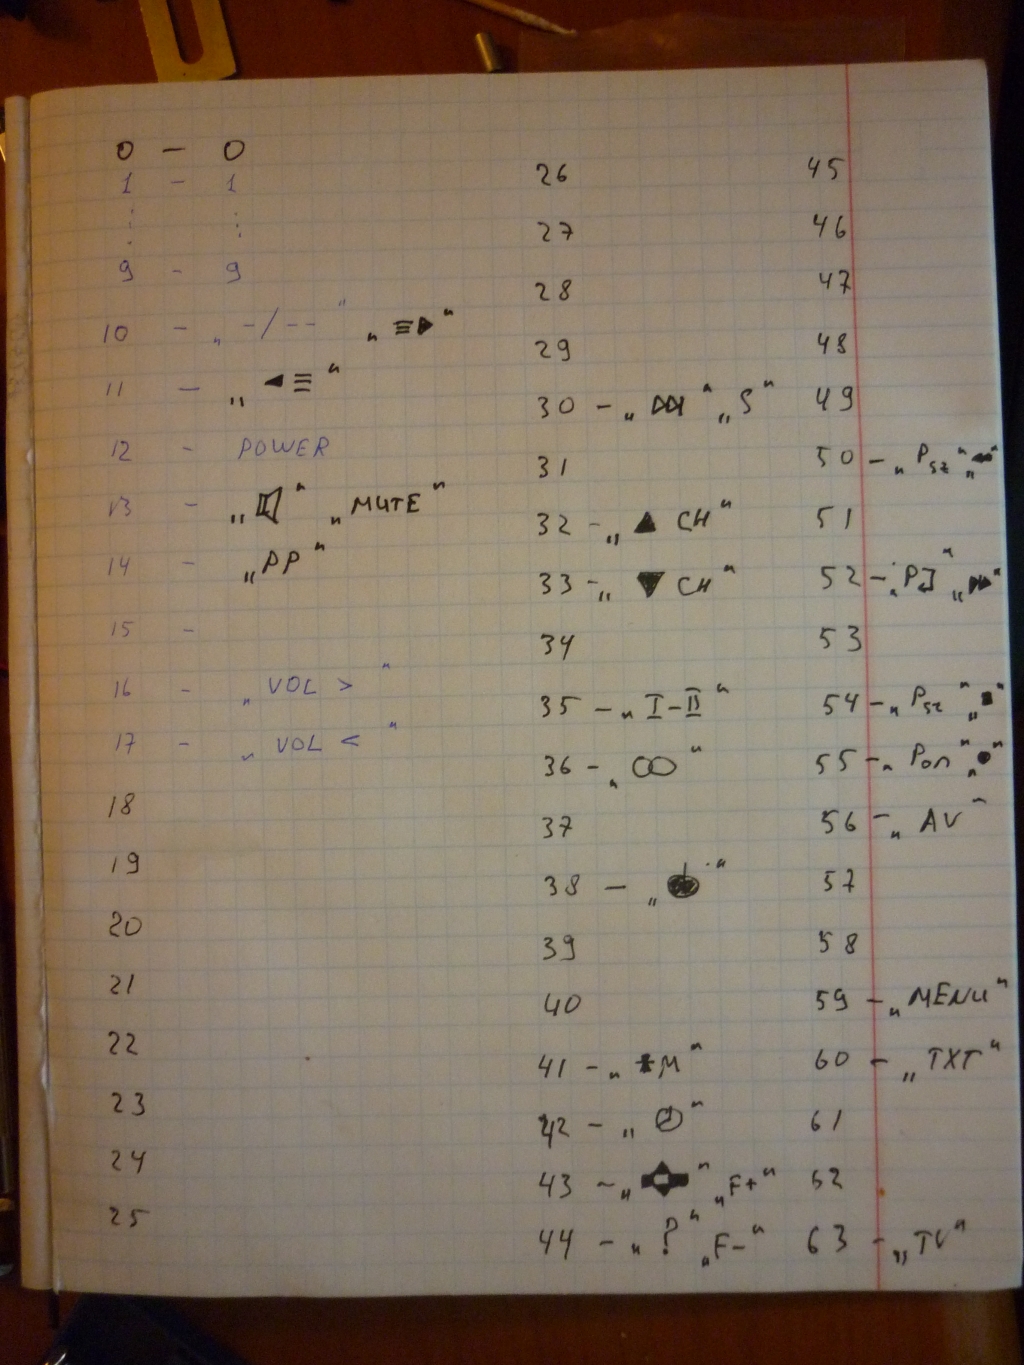 0 — 0
1 - 1
⋮ ⋮
9 - 9
10 - „ -/-- " „ ≡▶ "
11 — „ ◀≡ "
12 - POWER
13 - „ " „ MUTE "
14 - „PP"
15 -
16 - „ VOL > "
17 - „ VOL < "
18
19
20
21
22
23
24
25
26
27
28
29
30 - „ " „S"
31
32 - „ ▲ CH "
33 - „ ▼ CH "
34
35 - „ I-II "
36 - „ "
37
38 — „ "
39
40
41 - „ *M "
42 - „ "
43 - „ " „F+"
44 - „ ? " „F-"
45
46
47
48
49
50 - „ Psz " „◀◀"
51
52 - „ " „▶▶"
53
54 - „ Psz " „■"
55 - „ Pon " „●"
56 - „ AV "
57
58
59 - „ MENU "
60 - „ TXT "
61
62
63 - „ TV "